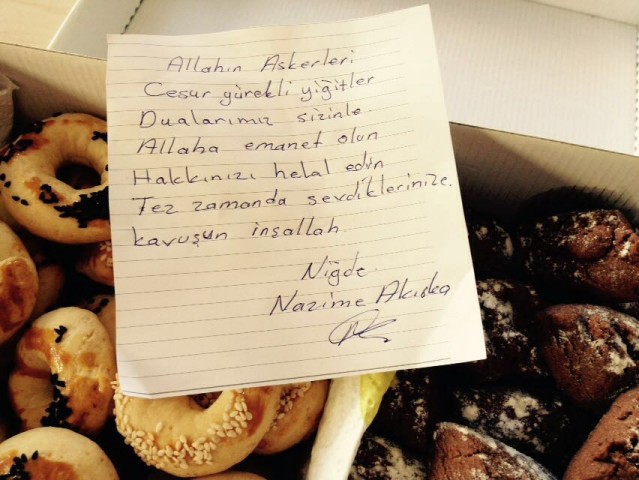 Allahın Askerleri
Cesur yürekli yiğitler
Dualarımız sizinle
Allaha emanet olun
Hakkınızı helal edin
Tez zamanda sevdiklerinize.
kavuşun inşallah
Niğde
Nazime Akıska